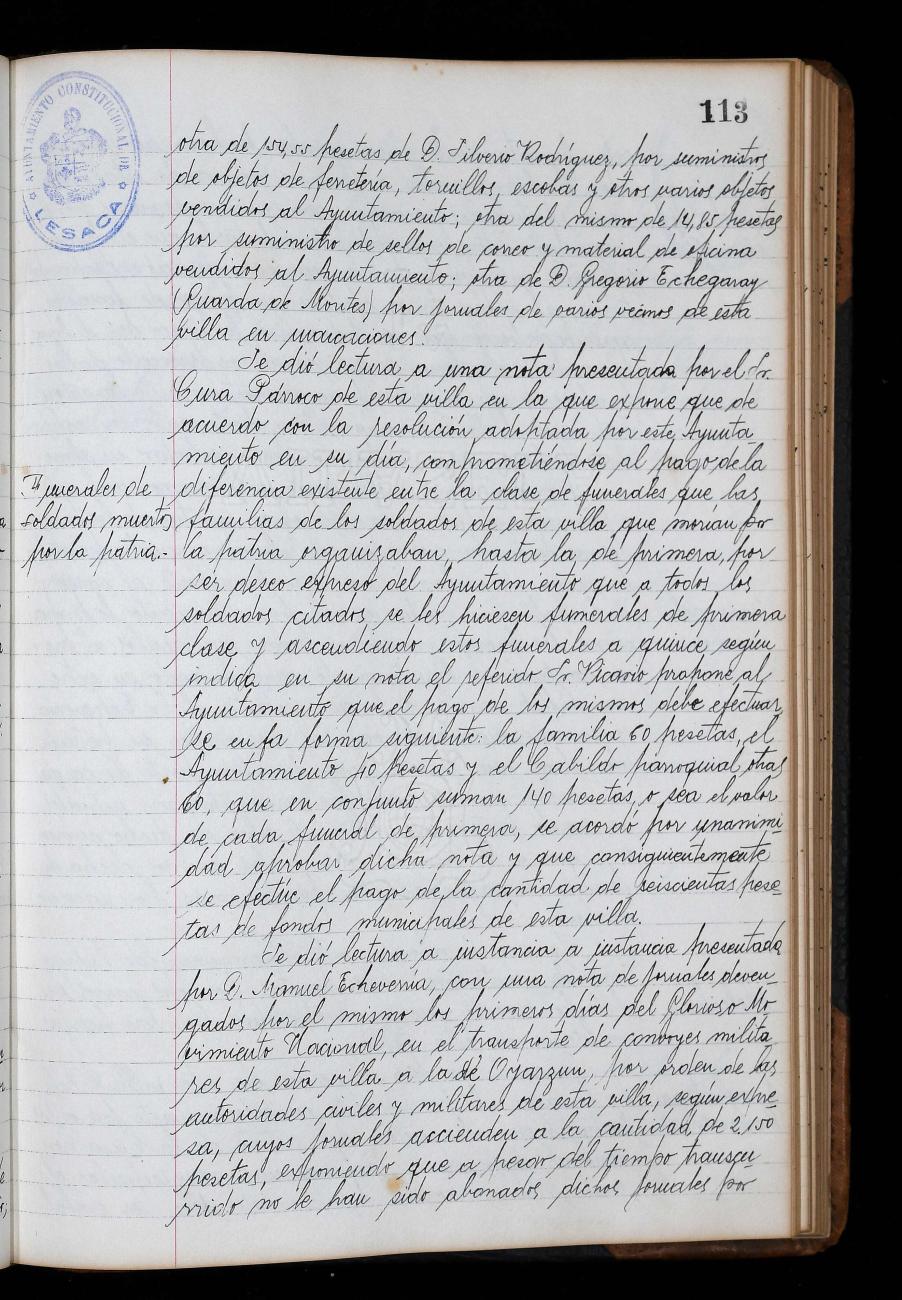 113
AYUNTAMIENTO CONSTITUCIONAL DE
LESACA
otra de 154,55 pesetas de D. Silverio Rodríguez, por suministros
de objetos de ferretería, tornillos, escobas y otros varios objetos
vendidos al Ayuntamiento; otra del mismo de 14,85 pesetas
por suministro de sellos de correo y material de oficina
vendidos al Ayuntamiento; otra de D. Gregorio Echegaray
(Guarda de Montes) por jornales de varios vecinos de esta
villa en marcaciones.
Se dió lectura a una nota presentada por el Sr.
Cura Párroco de esta villa en la que expone que de
acuerdo con la resolución adoptada por este Ayunta
miento en su día, comprometiéndose al pago de la
Funerales de
soldados muertos
por la patria.-
diferencia existente entre la clase de funerales que las
familias de los soldados de esta villa que morían por
la patria organizaban, hasta la de primera, por
ser deseo expreso del Ayuntamiento que a todos los
soldados citados se les hiciesen funerales de primera
clase y ascendiendo estos funerales a quince según
indica en su nota el referido Sr. Vicario propone al
Ayuntamiento que el pago de los mismos debe efectuar
se en la forma siguiente: la familia 60 pesetas, el
Ayuntamiento 40 pesetas y el Cabildo parroquial otras
60, que en conjunto suman 140 pesetas, o sea el valor
de cada funeral de primera, se acordó por unanimi
dad aprobar dicha nota y que consiguientemente
se efectúe el pago de la cantidad de seiscientas pese-
tas de fondos municipales de esta villa.
Se dió lectura a instancia a instancia presentada
por D. Manuel Echeverría, con una nota de jornales deven-
gados por el mismo los primeros días del Glorioso Mo-
vimiento Nacional, en el transporte de convoyes milita-
res de esta villa a la de Oyarzun, por orden de las
autoridades civiles y militares de esta villa, según expre-
sa, cuyos jornales accienden a la cantidad de 2.150
pesetas, exponiendo que a pesar del tiempo transcu-
rrido no le han sido abonados dichos jornales por